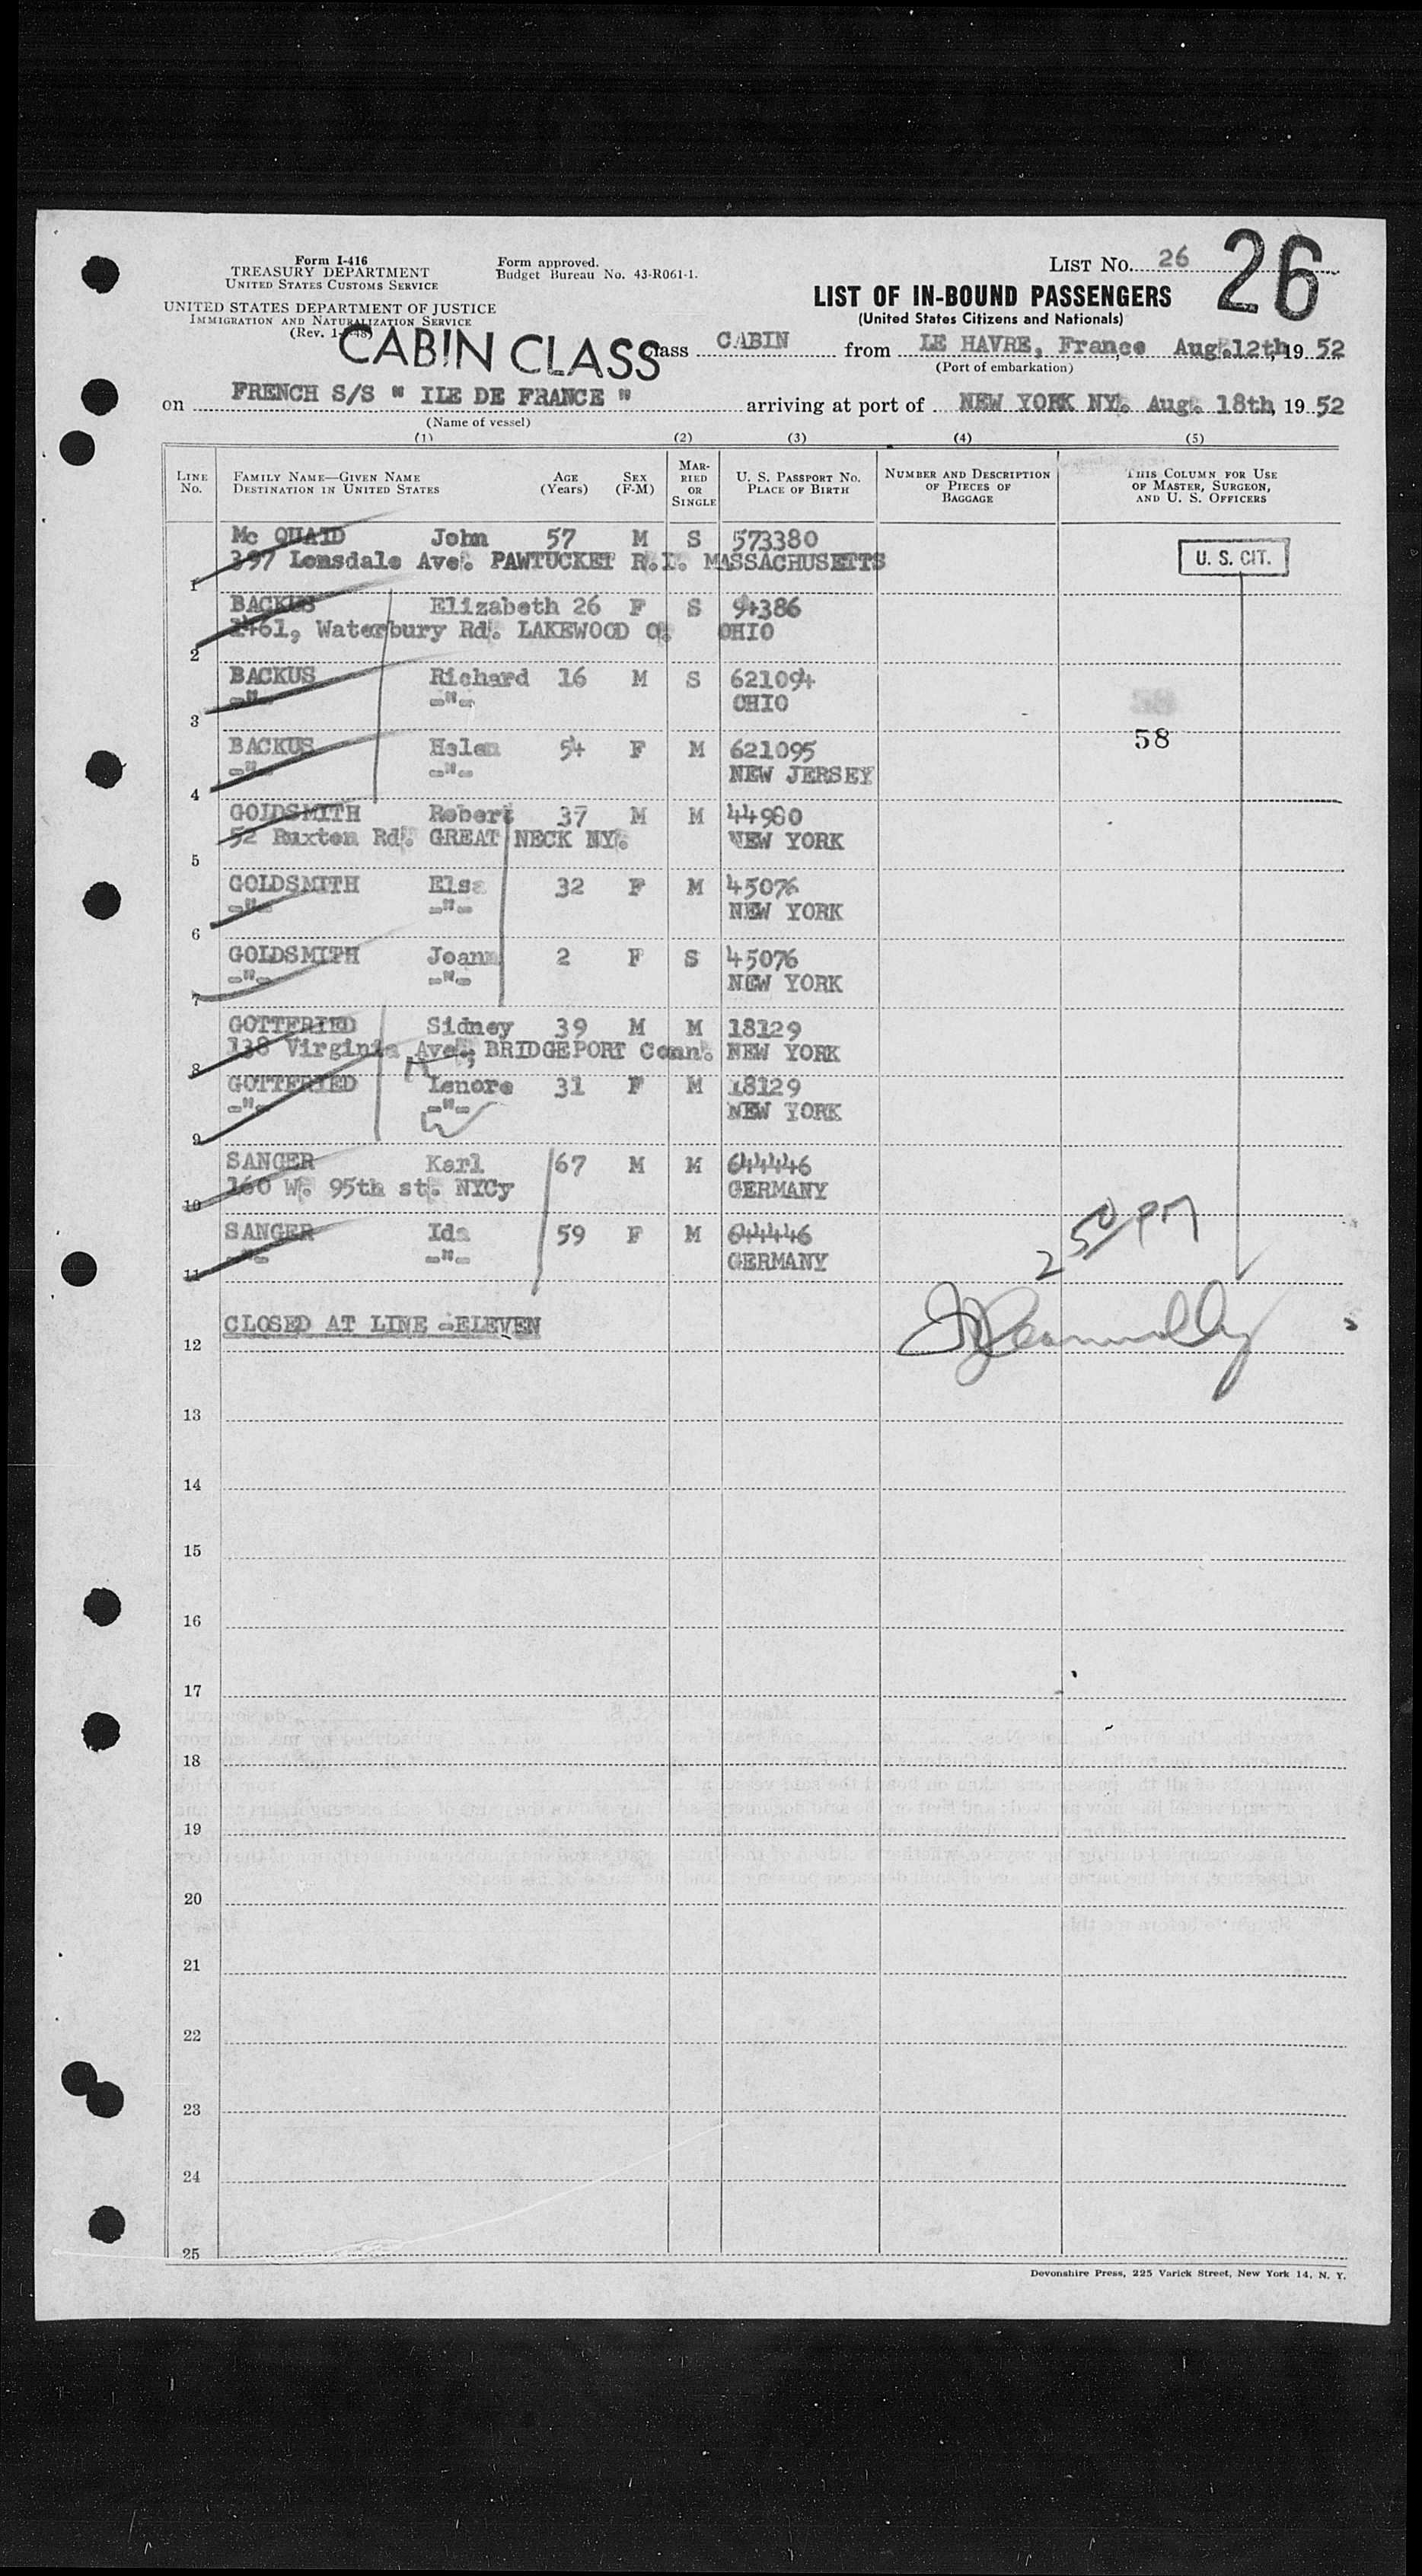 Form I-416
TREASURY DEPARTMENT
UNITED STATES CUSTOMS SERVICE
UNITED STATES DEPARTMENT OF JUSTICE
IMMIGRATION AND NATURALIZATION SERVICE
(Rev.
Form approved.
Budget Bureau No. 43-R061-1.
LIST No. 26
26
LIST OF IN-BOUND PASSENGERS
(United States Citizens and Nationals)
CABIN CLASS
Class CABIN from LE HAVRE, France Aug. 12th, 19 52
(Port of embarkation)
on FRENCH S/S " ILE DE FRANCE " arriving at port of NEW YORK NY. Aug. 18th, 19 52
(Name of vessel)
(1) (2) (3) (4) (5)
LINE No. FAMILY NAME—GIVEN NAME DESTINATION IN UNITED STATES AGE (Years) SEX (F-M) MARRIED OR SINGLE U. S. PASSPORT No. PLACE OF BIRTH NUMBER AND DESCRIPTION OF PIECES OF BAGGAGE THIS COLUMN FOR USE OF MASTER, SURGEON, AND U. S. OFFICERS
Mc QUAID John 57 M S 573380
1 397 Lonsdale Ave. PAWTUCKET R.I. MASSACHUSETTS U. S. CIT.
BACKUS Elizabeth 26 F S 94386
2 1461, Waterbury Rd. LAKEWOOD O. OHIO
BACKUS Richard 16 M S 621094
3 -"- -"- OHIO
58
BACKUS Helen 54 F M 621095
4 -"- -"- NEW JERSEY
GOLDSMITH Robert 37 M M 44980
5 52 Ruxton Rd. GREAT NECK NY. NEW YORK
GOLDSMITH Elsa 32 F M 45076
6 -"- -"- NEW YORK
GOLDSMITH Joann 2 F S 45076
7 -"- -"- NEW YORK
GOTTFRIED Sidney 39 M M 18129
8 138 Virginia Ave., BRIDGEPORT Conn. NEW YORK
GOTTFRIED Lenore 31 F M 18129
9 -"- -"- NEW YORK
SANGER Karl 67 M M 64446
10 160 W. 95th st. NYCy GERMANY
SANGER Ida 59 F M 64446
11 -"- -"- GERMANY
2 50 PM
CLOSED AT LINE -ELEVEN
12
13
14
15
16
17
18
19
20
21
22
23
24
25
Devonshire Press, 225 Varick Street, New York 14, N. Y.